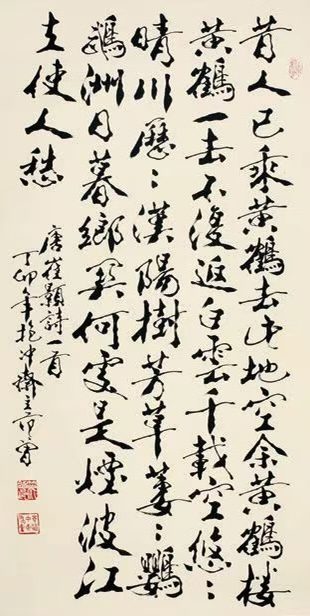 昔人已乘黄鶴去此地空余黄鶴楼
黄鶴一去不復返白雲千載空悠〻
晴川歷〻漢陽樹芳草萋〻鸚
鵡洲日暮鄉關何處是煙波江
上使人愁
唐崔顥詩一首
丁卯年抱冲齋主范曾